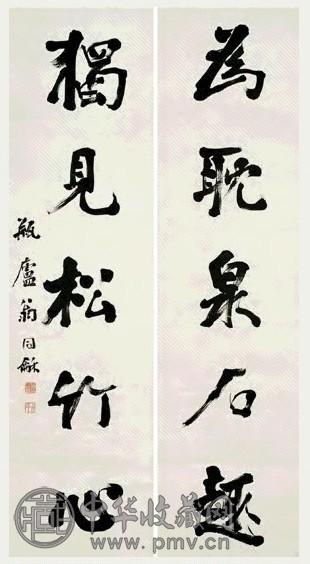 為耽泉石趣
獨見松竹心
瓶廬翁同龢
中华收藏网
www.pmv.cn